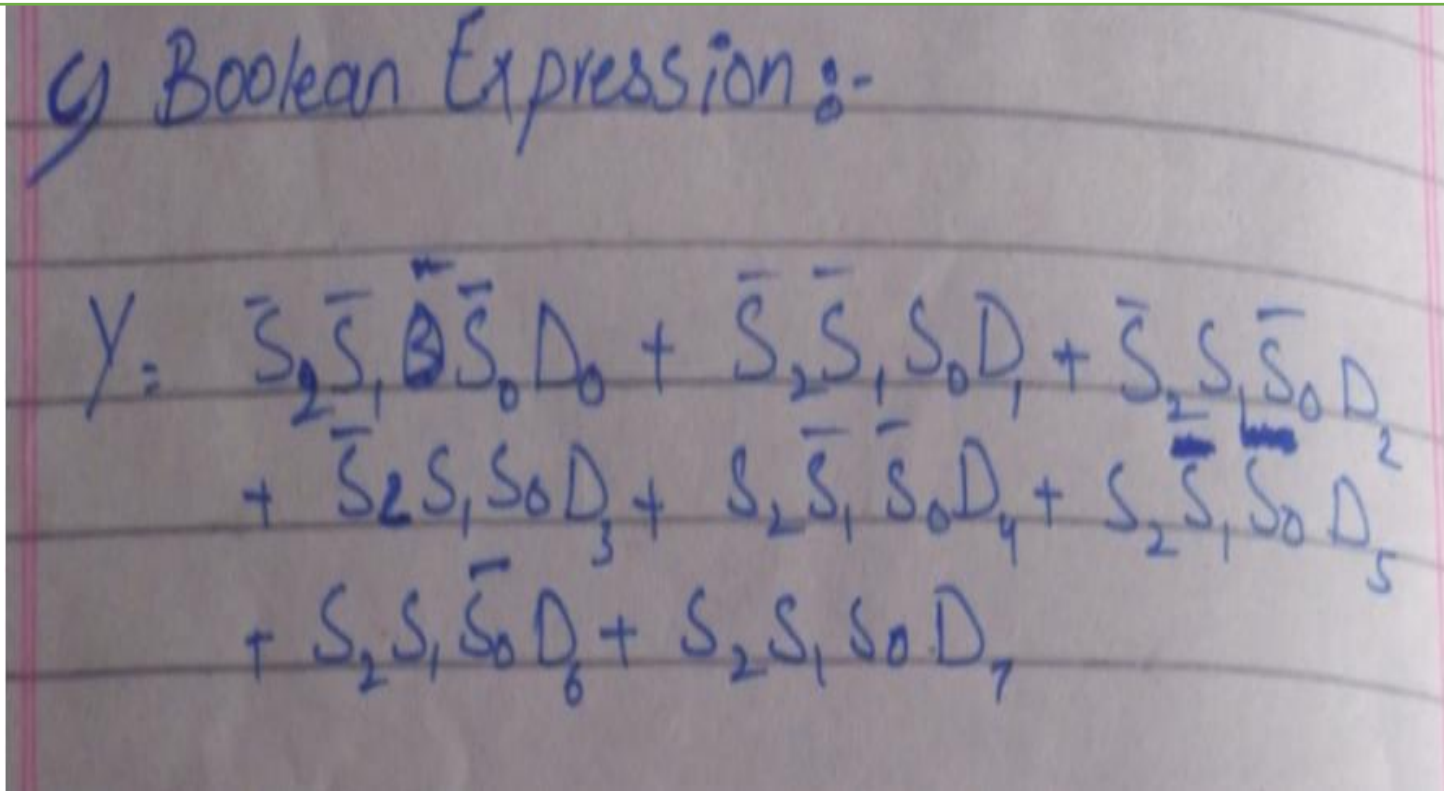 c) Boolean Expression :-
Y = S̅₂S̅₁S̅₀D₀ + S̅₂S̅₁S₀D₁ + S̅₂S₁S̅₀D₂
+ S̅₂S₁S₀D₃ + S₂S̅₁S̅₀D₄ + S₂S̅₁S₀D₅
+ S₂S₁S̅₀D₆ + S₂S₁S₀D₇